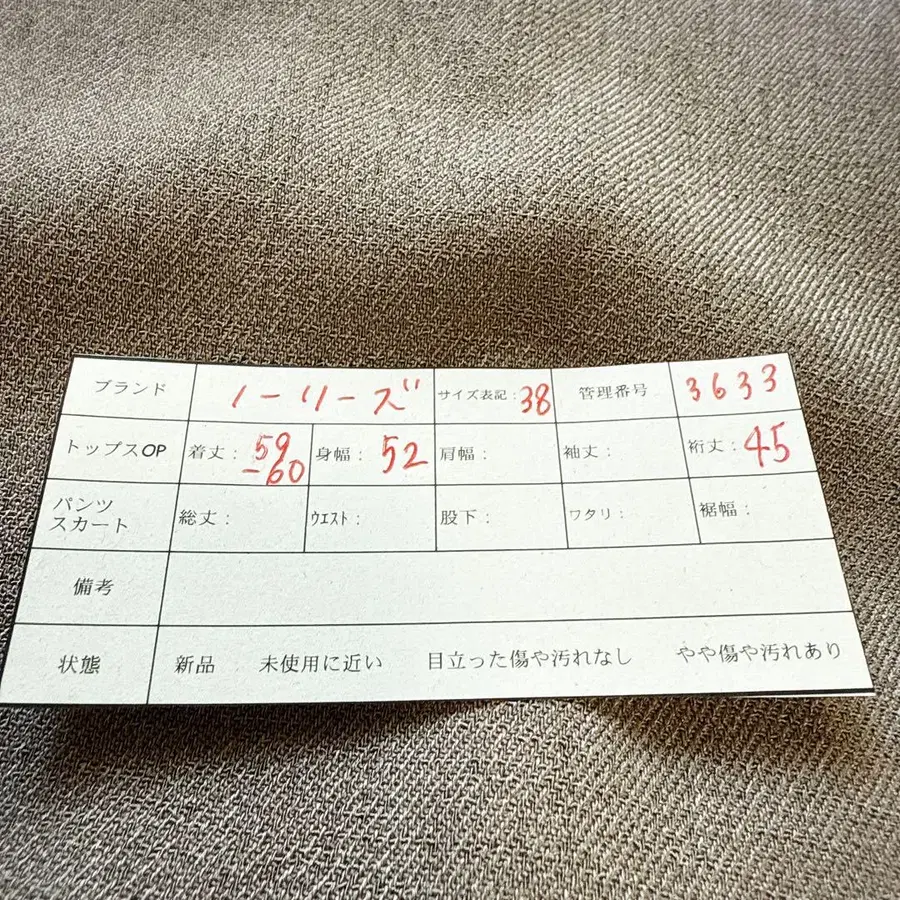 ブランド ノーリーズ サイズ表記:38 管理番号 3633
トップスOP 着丈:59-60 身幅:52 肩幅: 袖丈: 裄丈:45
パンツスカート 総丈: ウエスト: 股下: ワタリ: 裾幅:
備考
状態 新品 未使用に近い 目立った傷や汚れなし やや傷や汚れあり